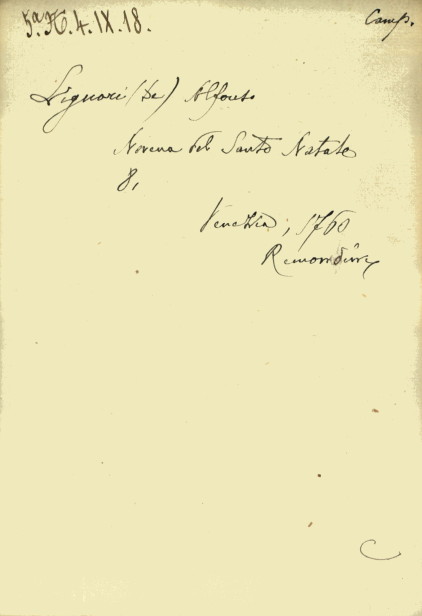 5ª. K. 4. IX. 18.
Camp.
Liguori (de) Alfonso
Novena del Santo Natale
8,
Venezia, 1760
Remondini
C